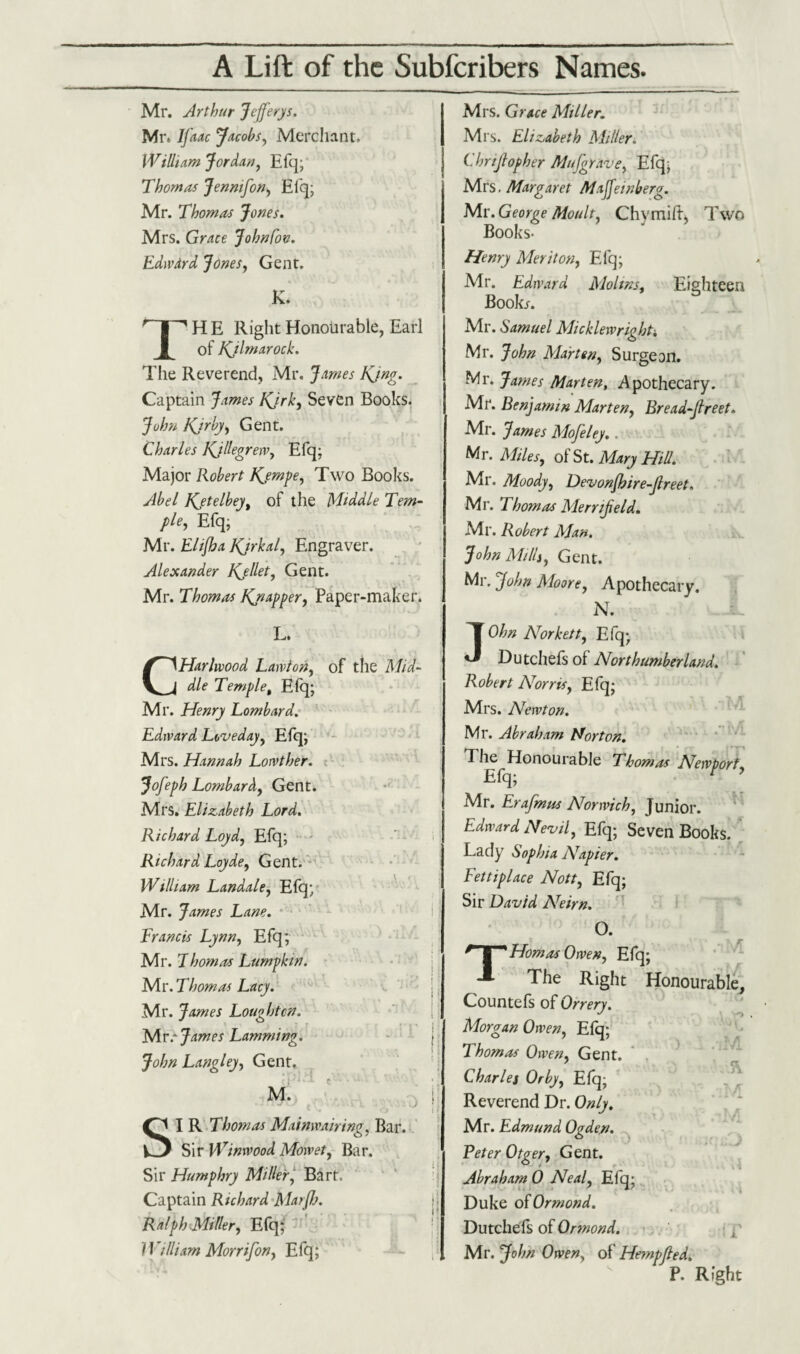 A Liſt of the Subſcribers Names.
Mr. Arthur Jefferys.
Mr. Iſaac Jacobs, Merchant.
William Jordan, Eſq;
Thomas Jenniſon, Eſq;
Mr. Thomas Jones.
Mrs. Grace Johnſon.
Edward Jones, Gent.
K.
THE Right Honourable, Earl
of Kilmarock.
The Reverend, Mr. James King.
Captain James Kirk, Seven Books.
John Kirby, Gent.
Charles Killegrew, Eſq;
Major Robert Kempe, Two Books.
Abel Ketelbey, of the Middle Tem-
ple, Eſq;
Mr. Eliſha Kirkal, Engraver.
Alexander Kellet, Gent.
Mr. Thomas Knapper, Paper-maker.
L.
CHarlwood Lawton, of the Mid-
dle Temple, Eſq;
Mr. Henry Lombard.
Edward Loveday, Eſq;
Mrs. Hannah Lowther.
Joſeph Lombard, Gent.
Mrs. Elizabeth Lord.
Richard Loyd, Eſq;
Richard Loyde, Gent.
William Landale, Eſq;
Mr. James Lane.
Francis Lynn, Eſq;
Mr. Thomas Lumpkin.
Mr. Thomas Lacy.
Mr. James Loughton.
Mr. James Lamming.
John Langley, Gent.
M.
SIR Thomas Mainwairing, Bar.
Sir Winwood Mowet, Bar.
Sir Humphry Miller, Bart.
Captain Richard Marſh.
Ralph Miller, Eſq;
William Morriſon, Eſq;
Mrs. Grace Miller.
Mrs. Elizabeth Miller.
Chriſtopher Muſgrave, Eſq;
Mrs. Margaret Maſſeinberg.
Mr. George Moult, Chymiſt, Two
Books.
Henry Meriton, Eſq;
Mr. Edward Molins, Eighteen
Books.
Mr. Samuel Micklewright.
Mr. John Marten, Surgeon.
Mr. James Marten, Apothecary.
Mr. Benjamin Marten, Bread-ſtreet.
Mr. James Moſeley.
Mr. Miles, of St. Mary Hill.
Mr. Moody, Devonſhire-ſtreet.
Mr. Thomas Merrifield.
Mr. Robert Man.
John Mills, Gent.
Mr. John Moore, Apothecary.
N.
JOhn Norkett, Eſq;
Dutcheſs of Northumberland.
Robert Norris, Eſq;
Mrs. Newton.
Mr. Abraham Norton.
The Honourable Thomas Newport,
Eſq;
Mr. Eraſmus Norwich, Junior.
Edward Nevil, Eſq; Seven Books.
Lady Sophia Napier.
Fettiplace Nott, Eſq;
Sir David Neirn.
O.
THomas Owen, Eſq;
The Right Honourable,
Counteſs of Orrery.
Morgan Owen, Eſq;
Thomas Owen, Gent.
Charles Orby, Eſq;
Reverend Dr. Only.
Mr. Edmund Ogden.
Peter Otger, Gent.
Abraham O Neal, Eſq;
Duke of Ormond.
Dutcheſs of Ormond.
Mr. John Owen, of Hempſted.
P. Right